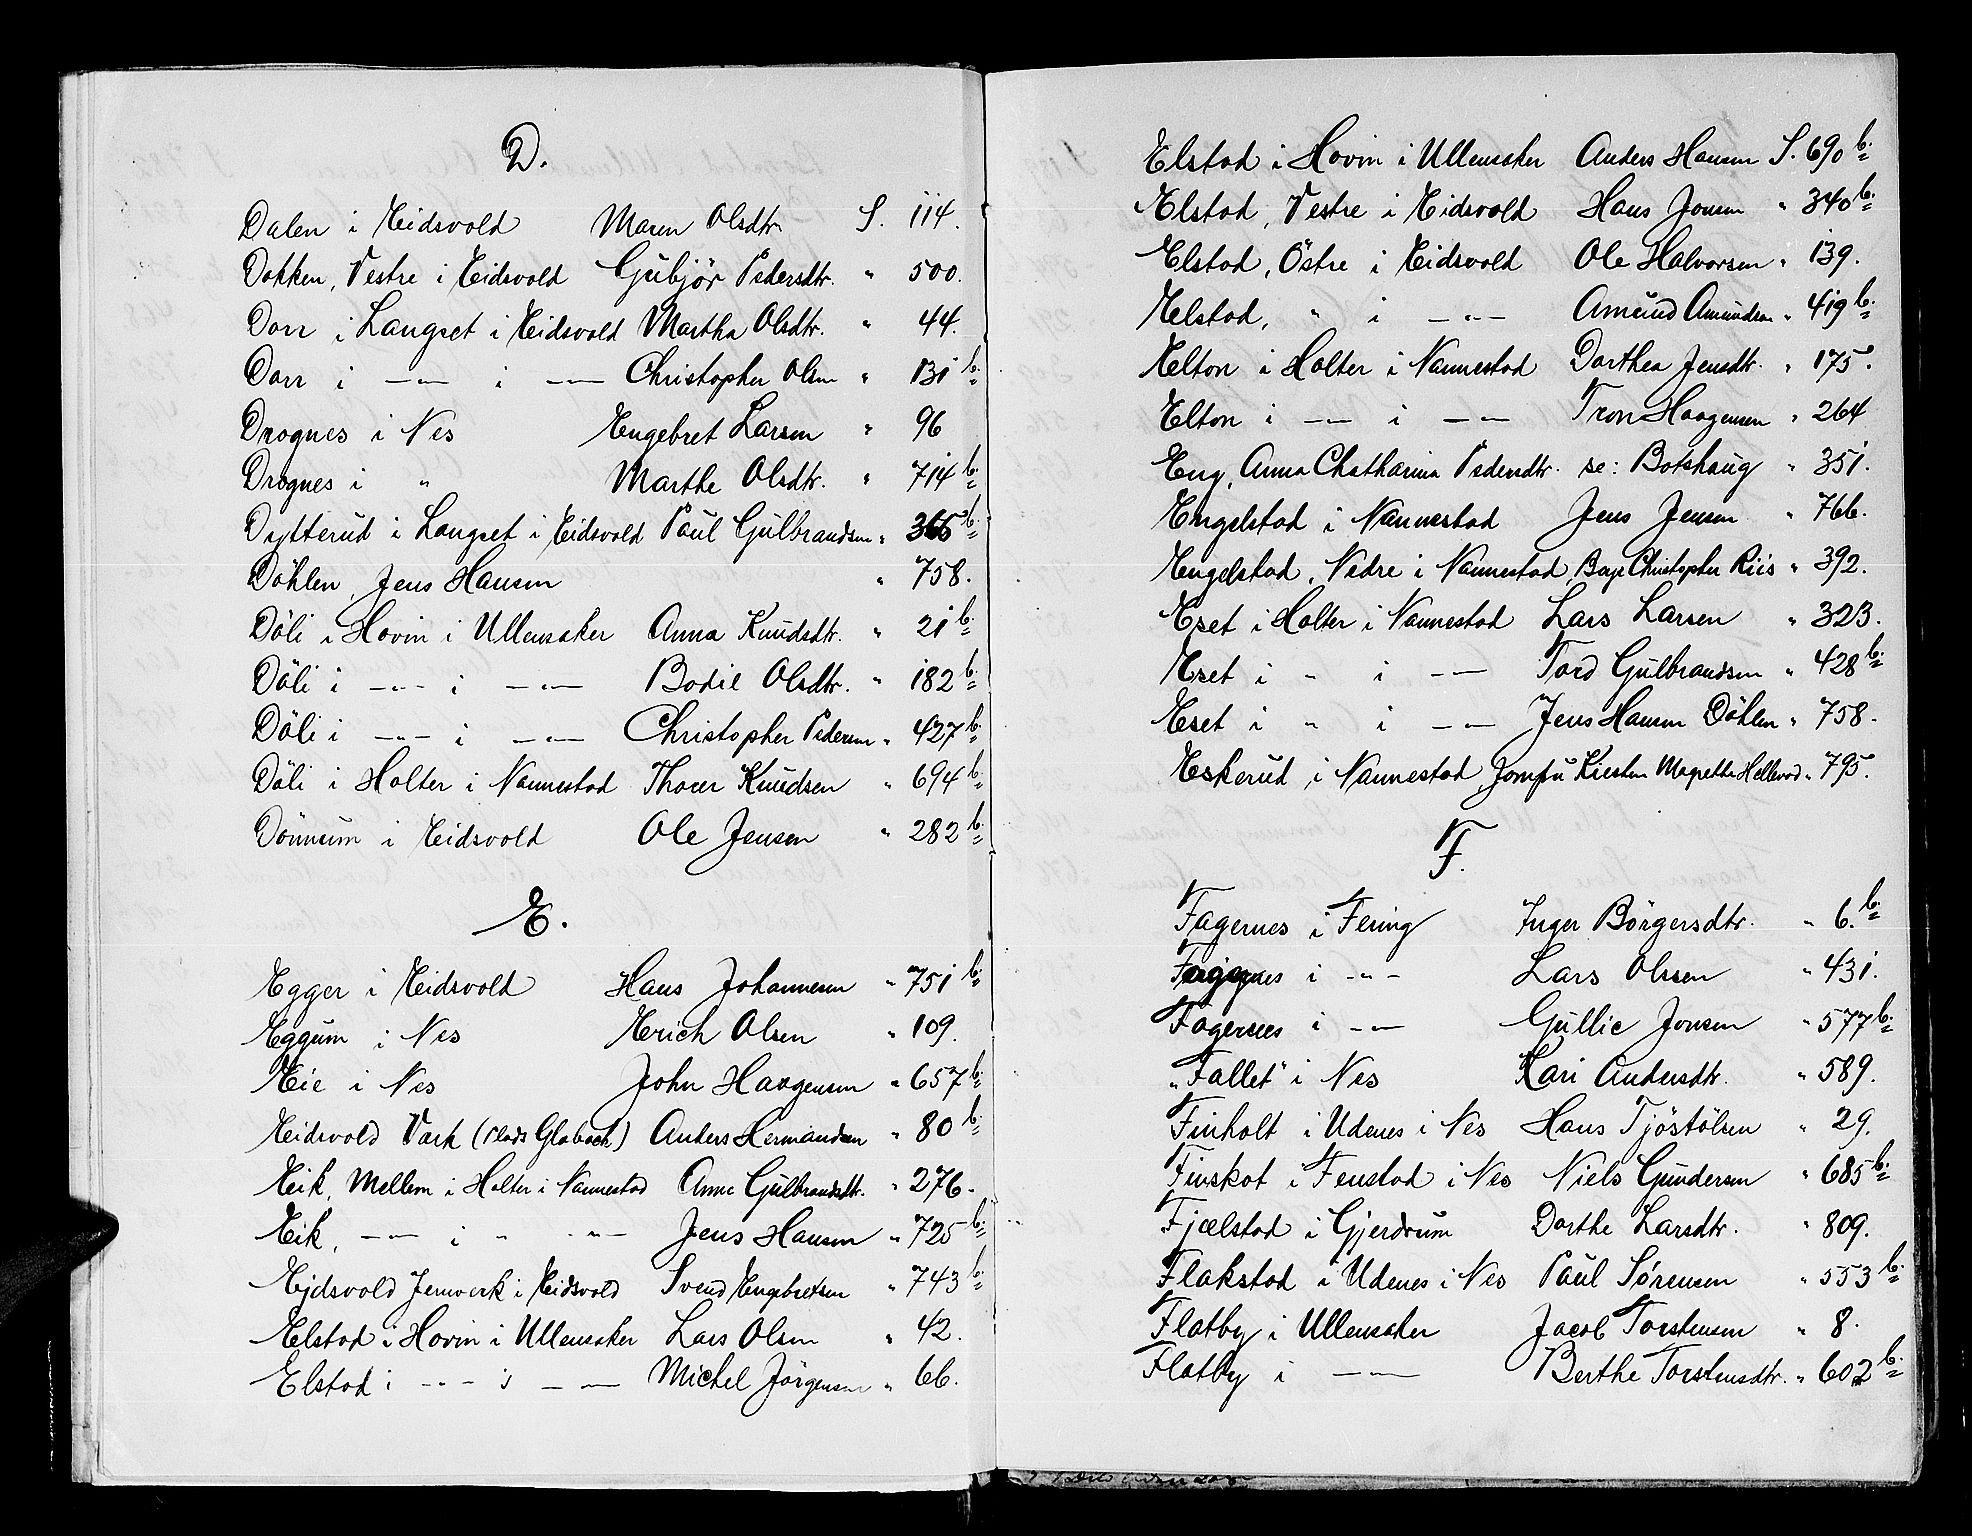 D.
Dalen i Eidsvold Maren Olsdtr. S. 114.
Dokken, Vestre i Eidsvold Gubjör Pedersdtr. " 500.
Dorr i Langset i Eidsvold Martha Olsdtr. " 44.
Dorr i —"— i —"— Christopher Olsen " 131 b.
Drognes i Nes Engebret Larsen " 96
Drognes i " Marthe Olsdtr. " 714 b.
Dytterud i Langset i Eidsvold Paul Gulbrandsen " 366 b.
Döhlen, Jens Hansen " 758.
Döli i Hovin i Ullensaker Anna Knudsdtr. " 21 b.
Döli i —"— i —"— Bodil Olsdtr. " 182 b.
Döli i —"— i —"— Christopher Pedersen " 427 b.
Döli i Holter i Nannestad Thorer Knudsen " 694 b.
Dönnum i Eidsvold Ole Jensen " 282 b.
E.
Egger i Eidsvold Hans Johannesen " 751 b.
Eggum i Nes Erich Olsen " 109.
Eie i Nes John Haagensen " 657 b.
Eidsvold Vark (Plads Glabach) Anders Hermandsen " 80 b.
Eik, Mellem i Holter i Nannestad Anne Gulbrandsdtr. " 276.
Eik, —"— i " —"— Jens Hansen " 725 b.
Ejdsvold Jernverk i Eidsvold Svend Engebretsen " 743 b.
Elstad i Hovin i Ullensaker Lars Olsen " 42.
Elstad i —"— i —"— Michel Jörgensen " 66.
Elstad i Hovin i Ullensaker Anders Hansen S. 690 b.
Elstad, Vestre i Eidsvold Hans Jonsen " 340 b.
Elstad, Östre i Eidsvold Ole Halvorsen " 139.
Elstad, " i —"— Amund Amundsen " 419 b.
Elton i Holter i Nannestad Dorthea Jensdtr. " 175.
Elton i —"— i —"— Tron Haagensen " 264
Eng, Anna Chatharina Pedersdtr. se: Botshaug " 351.
Engelstad i Nannestad Jens Jensen " 766.
Engelstad, Nedre i Nannestad, Christopher Riis " 392.
Eset i Holter i Nannestad Lars Larsen " 323.
Eset i " i —"— Tord Gulbrandsen " 428 b.
Eset i " i —"— Jens Hansen Döhlen " 758.
Eskerud i Nannestad, Jomfru Kirsten Magrethe " 795.
F.
Fagernes i Fering Inger Börgersdtr. " 6. b.
Fagernes i —"— Lars Olssen " 431.
Fagernes i —"— Gullic Jonsen " 577 b.
"Fallet" i Nes Kari Andersdtr. " 589.
Finholt i Udenes i Nes Hans Tjöstölsen " 29.
Finskot i Fenstad i Nes Niels Gundersen " 685 b.
Fjælstad i Gjerdrum Dorthe Larsdtr. " 809.
Flakstad i Udenes i Nes Paul Sørensen " 553 b.
Flatby i Ullensaker Jacob Torstensen " 8.
Flatby i —"— Berthe Torstensdtr. " 602 b.